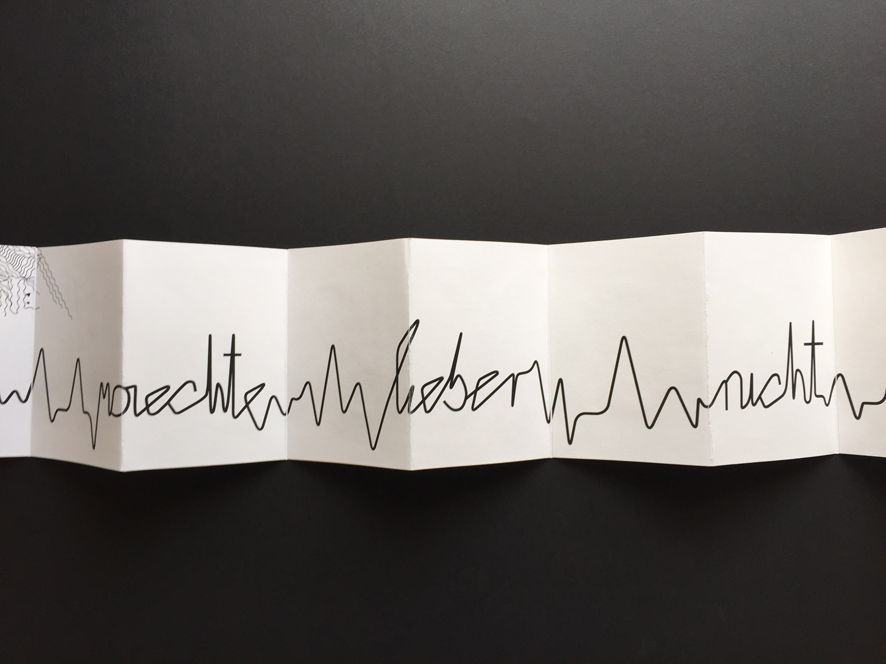 moechte lieber nicht